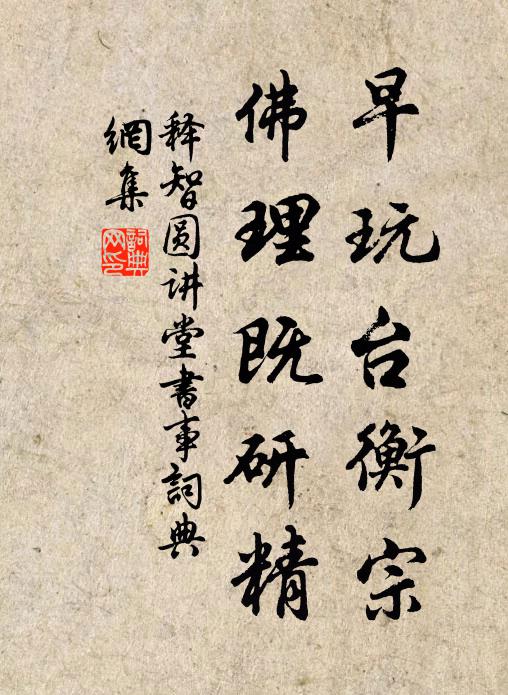 早玩台衡宗
佛理既研精
释智圆讲堂書事詞典
網集
詞典
网印